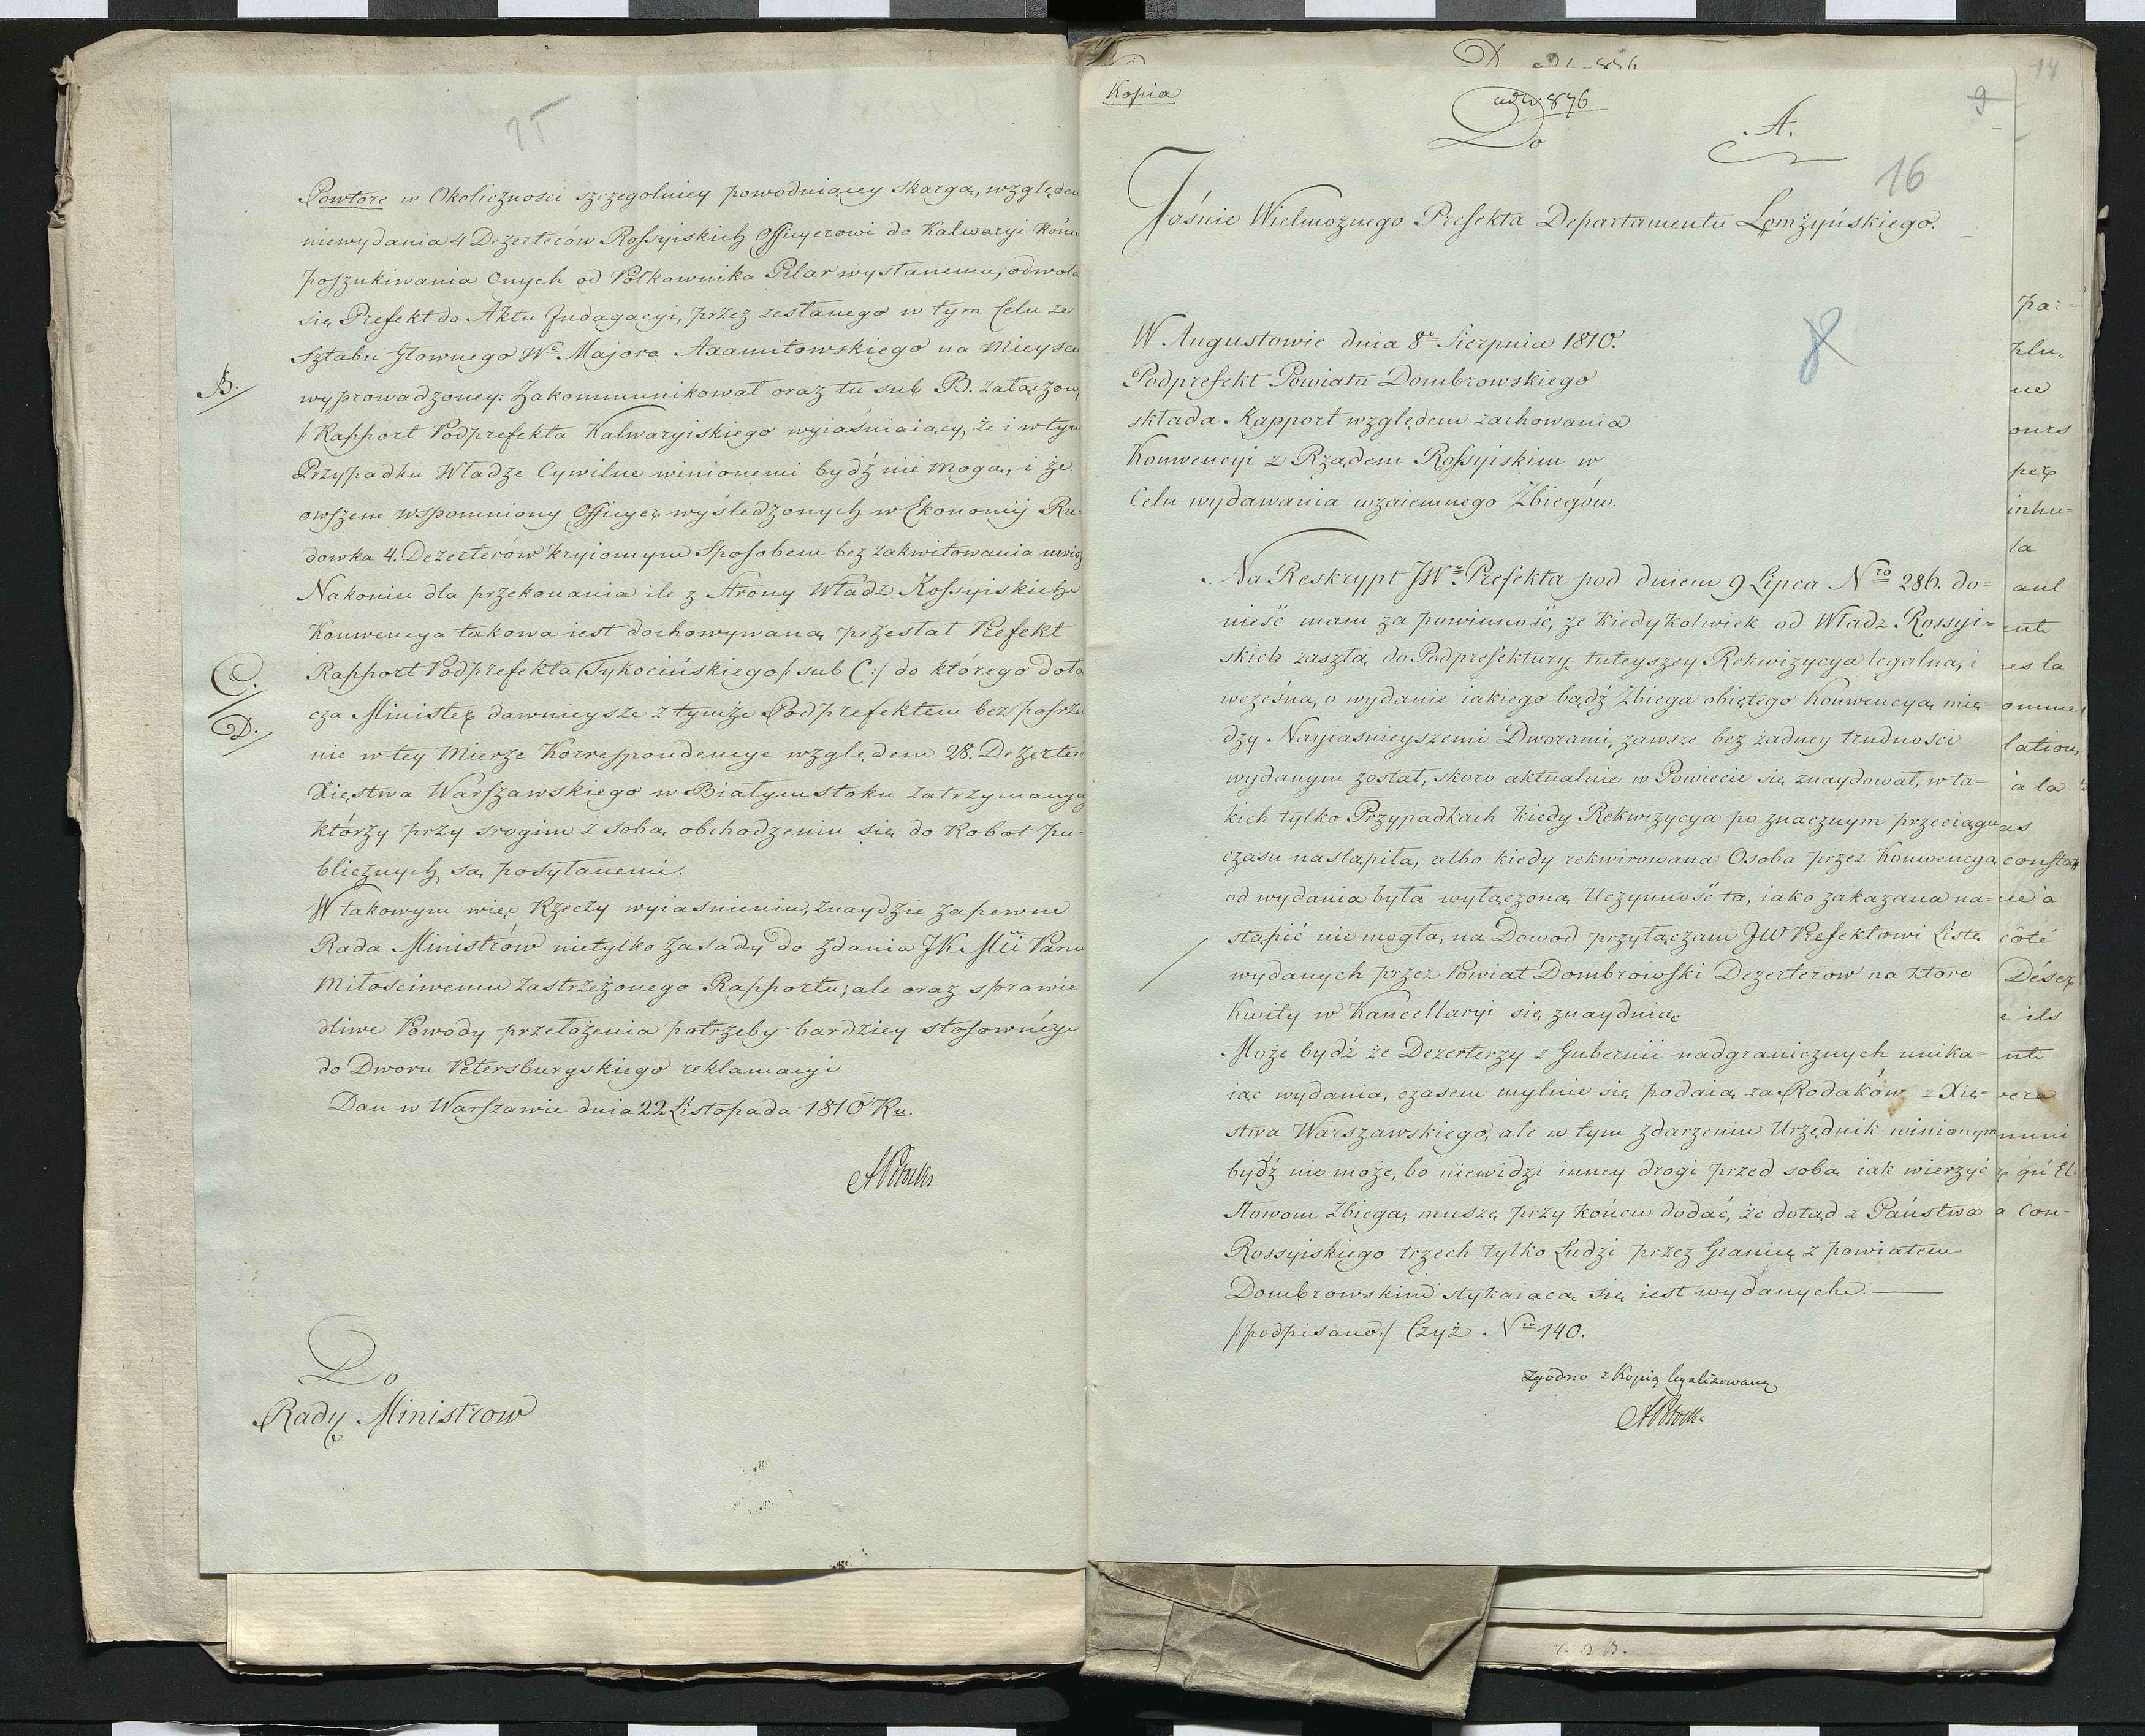 15
Powtore w Okoliczności szczegolniey powodniącey Skargą, względem
niewydania 4 Dezerterów Rossyiskich Officyerowi do Kalwaryi
poszukiwania Onych od Półkownika Pilar wysłanemu, odwoła
się Prefekt do Aktu Indagacyi, przez zesłanego w tym Celu ze
Sztabu Głownego Wo Majora Axamitowskiego na Mieyscu
B./
wyprowadzoney: Zakommunikował oraz tu sub B. załączony
/: Rapport Podprefekta Kalwaryiskiego wyiaśniaiący, że i w tym
Przypadku Władze Cywilne winionemi bydź nie mogą, i że
owszem wspomniony Officyer wyśledzonych w Ekonomij Ru-
dowka 4. Dezerterów kryiomym Sposobem bez zakwitowania
Nakoniec dla przekonania ile z Strony Władz Rossyiskich
Konwencya takowa iest dochowywaną przesłał Prefekt
C./
Rapport Podprefekta Tykocińskiego /: sub C:/ do którego dołą
D./
cza Minister dawnieysze z tymże Podprefektem bezpośrze
nie w tey Mierze Korrespondencye względem 28. Dezerter
Xięstwa Warszawskiego w Białymstoku zatrzymanych
którzy przy srogim z sobą obchodzeniu się do Robot pu-
blicznych są posyłanemi.
W takowym więc Rzeczy wyiasnieniu, znaydzie zapewne
Rada Ministrów nietylko zasady do zdania JK Mći Panu
Miłościwemu zastrzeżonego Rapportu; ale oraz sprawie
dliwe Powody przełożenia potrzeby bardziey stosowney
do Dworu Petersburgskiego reklamacyi
Dan w Warszawie dnia 22 Listopada 1810 Ru.
APotocki
Do
Rady Ministrow
Kopia
ad N 876
Do
A.
9
14
16
Jaśnie Wielmożnego Prefekta Departamentu Łomżyńskiego.
8
W Augustowie dnia 8o Sierpnia 1810.
Podprefekt Powiatu Dombrowskiego
składa Rapport względem zachowania
Konwencyi z Rządem Rossyiskim w
Celu wydawania wzaiemnego Zbiegów.
Na Reskrypt JWo Prefekta pod dniem 9 Lipca Nro 286. do-
nieść mam za powinność, że kiedykolwiek od Władz Rossyi-
skich zaszła do Podprefektury tuteyszey Rekwizycya legalna, i
wcześna, o wydanie iakiego bądź Zbiega obiętego Konwencyą mię-
dzy Nayiasnieyszemi Dworami, zawsze bez żadney trudności
wydanym został, skoro aktualnie w Powiecie się znaydował, w ta-
kich tylko Przypadkach kiedy Rekwizycya po znacznym przeciągu
czasu nastąpiła, albo kiedy rekwirowana Osoba przez Konwencyą
od wydania była wyłączoną Uczynność ta, iako zakazana na-
stąpić nie mogła, na Dowod przyłączam JW Prefektowi Listę
wydanych przez Powiat Dombrowski Dezerterow na ktore
Kwity w Kancellaryi się znayduią
Może bydź że Dezerterzy z Gubernii nadgranicznych unika-
iąc wydania, czasem mylnie się podaią za Rodaków z Xię-
stwa Warszawskiego, ale w tym zdarzeniu Urzędnik winionym
bydź nie może, bo niewidzi inney drogi przed sobą iak wierzyć
słowom Zbiega, muszę przy końcu dodać, że dotąd z Państwa
Rossyiskiego trzech tylko Ludzi przez Granicę z powiatem
Dombrowskim stykaiącą się iest wydanych. —
/:podpisano:/ Czyż Nro 140.
Zgodno z Kopią legalizowaną
APotocki
par-
ne
ours
la
ant
ente
es la
lation,
à la
as
constan
ied à
côté
Déser
e ils
nte
vera
muni
a Con-